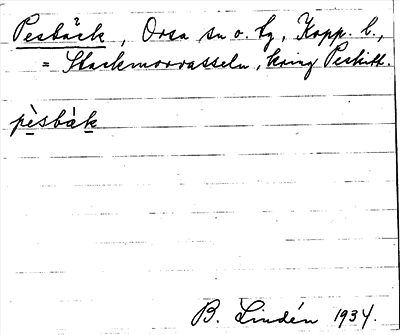 Pesbäck, Orsa sn o. by, Kopp. l.,
= Stackmorvasseln, kring Peskitt.
pèsbàk
B. Lindén 1934.